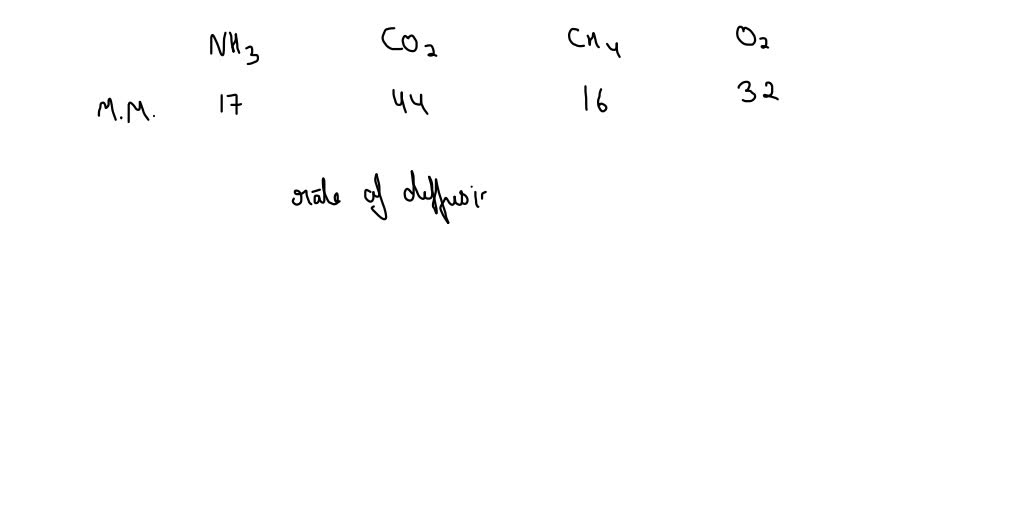 NH3 CO2 CH4 O2
M.M. 17 44 16 32
rate of diffusi